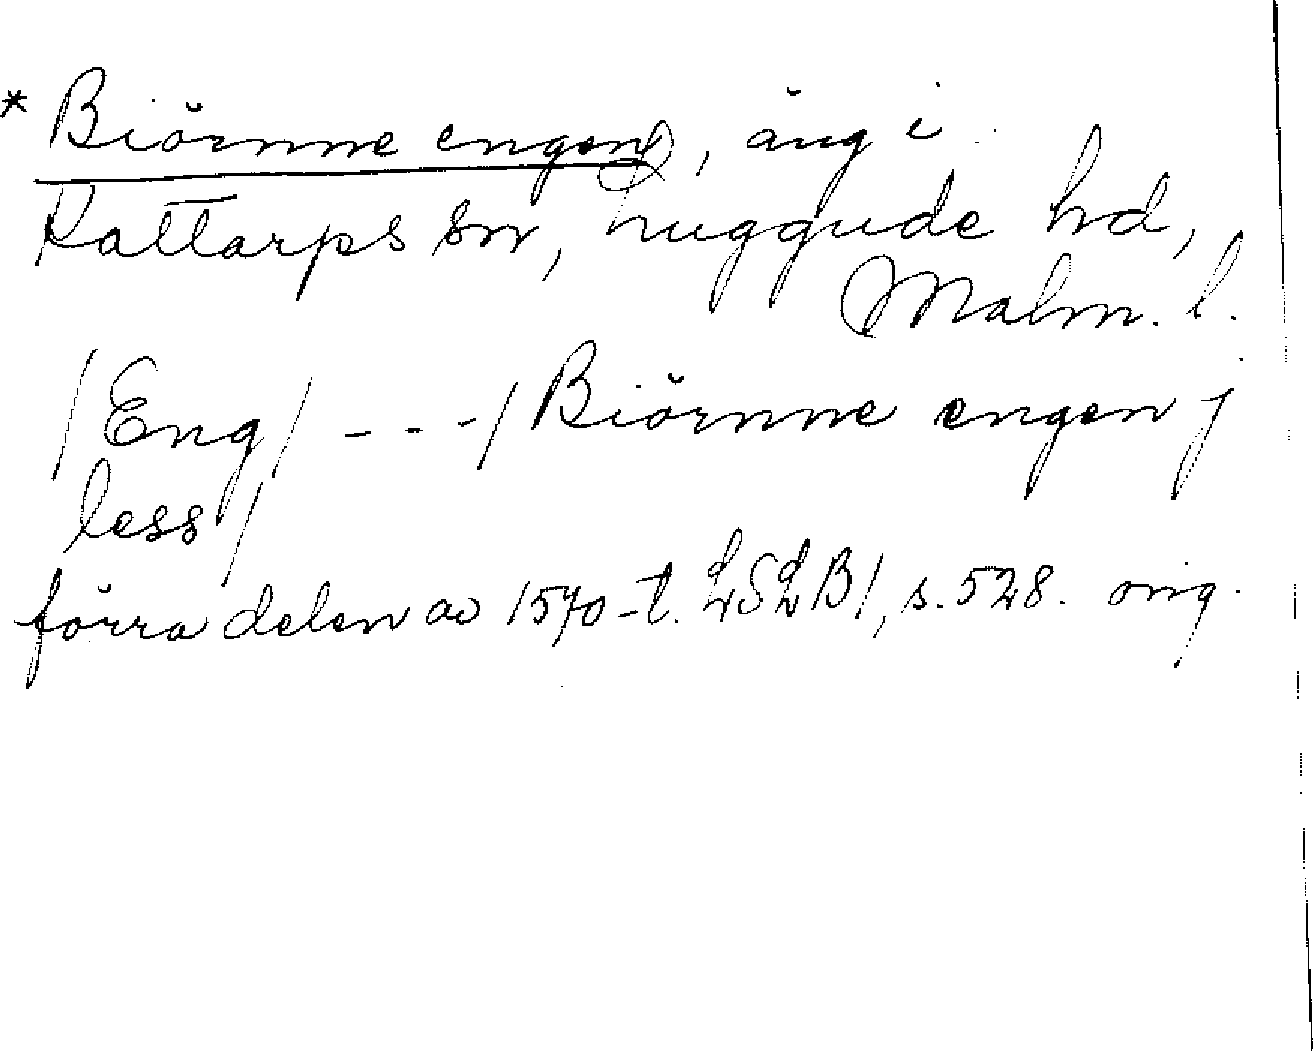 * Biörnne engen, äng i
Kattarps sn, Luggude hd,
Malm. l.
/Eng/ - - - / Biörnne engen j
less/
förra delen av 1570-t. LSLB1, s. 528. orig.